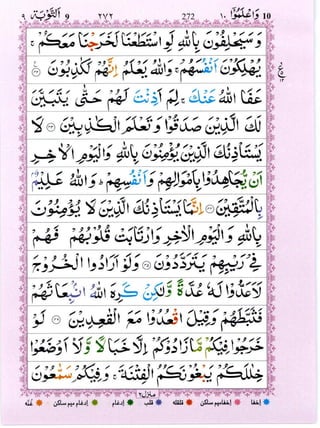 اَلتَّوْبَة ٩ ٢٧٢ 272 وَاعْلَمُوْٓا ١٠ 10
وَ سَيَحْلِفُوْنَ بِاللّٰهِ لَوِ اسْتَطَعْنَا لَخَرَجْنَا مَعَكُمْ ۚ
يُهْلِكُوْنَ اَنْفُسَهُمْ ۚ وَاللّٰهُ يَعْلَمُ اِنَّهُمْ لَكٰذِبُوْنَ ۝
عَفَا اللّٰهُ عَنْكَ ۚ لِمَ اَذِنْتَ لَهُمْ حَتّٰى يَتَبَيَّنَ
لَكَ الَّذِيْنَ صَدَقُوْا وَ تَعْلَمَ الْكٰذِبِيْنَ ۝ لَا
يَسْتَاْذِنُكَ الَّذِيْنَ يُؤْمِنُوْنَ بِاللّٰهِ وَالْيَوْمِ الْاٰخِرِ
اَنْ يُّجَاهِدُوْا بِاَمْوَالِهِمْ وَاَنْفُسِهِمْ ؕ وَاللّٰهُ عَلِيْمٌۢ
بِالْمُتَّقِيْنَ ۝ اِنَّمَا يَسْتَاْذِنُكَ الَّذِيْنَ لَا يُؤْمِنُوْنَ
بِاللّٰهِ وَ الْيَوْمِ الْاٰخِرِ وَارْتَابَتْ قُلُوْبُهُمْ فَهُمْ
فِيْ رَيْبِهِمْ يَتَرَدَّدُوْنَ ۝ وَلَوْ اَرَادُوا الْخُرُوْجَ
لَاَعَدُّوْا لَهٗ عُدَّةً وَّلٰكِنْ كَرِهَ اللّٰهُ انْۢبِعَاثَهُمْ
فَثَبَّطَهُمْ وَقِيْلَ اقْعُدُوْا مَعَ الْقٰعِدِيْنَ ۝ لَوْ
خَرَجُوْا فِيْكُمْ مَّا زَادُوْكُمْ اِلَّا خَبَالًا وَّلَا۟اَوْضَعُوْا
خِلٰلَكُمْ يَبْغُوْنَكُمُ الْفِتْنَةَ ۚ وَفِيْكُمْ سَمّٰعُوْنَ
منزل ٢
اخفا اخفا میم ساکن قلقله قلب ادغام ادغام میم ساکن غنّه